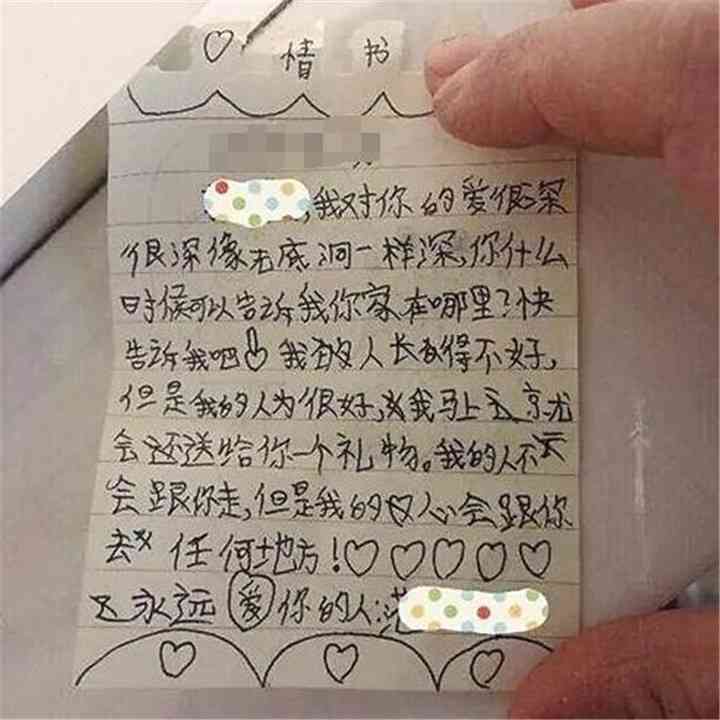 ♡ 情书
,我对你的爱很深
很深像无底洞一样深,你什么
时候可以告诉我你家在哪里?快
告诉我吧 我的人长得不好,
但是我的人为很好,我马上就
会还送给你一个礼物。我的人不
会跟你走,但是我的心会跟你
去 任何地方!♡♡♡♡♡
永远 爱 你的人:范
♡ ♡ ♡